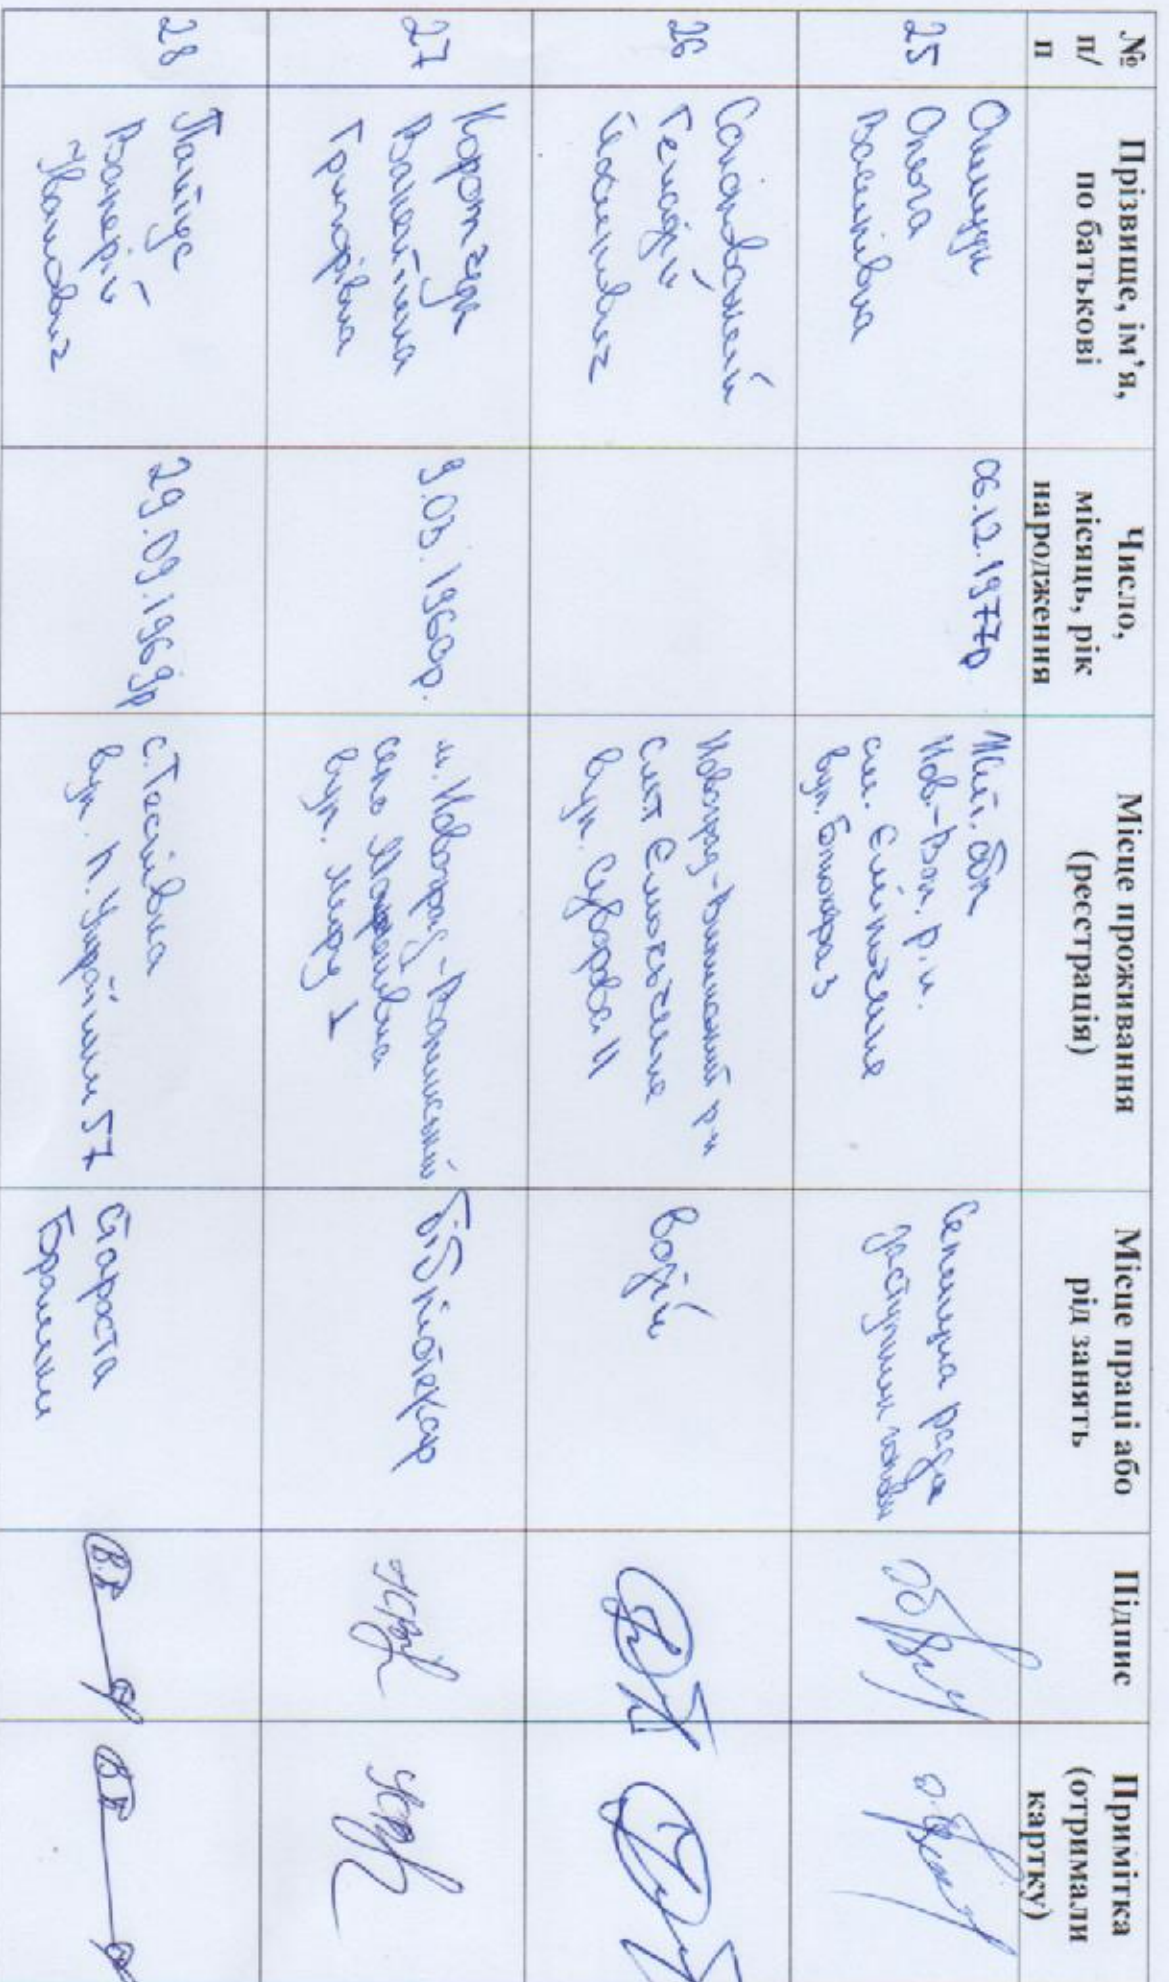 № п/п
Прізвище, ім’я,
по батькові
Число,
місяць, рік
народження
Місце проживання
(реєстрація)
Місце праці або
рід занять
Підпис
Примітка
(отримали
картку)
25
Ольга
Василівна
06.12.1977р
Жит. обл
Нов.-Вол. р.н.
вул. 3
Селищна рада
заступник голови
26
Генадій
Йосипович
Новоград-Волинський р-н
смт
вул. Суворова 11
водій
27
Корончук
Валентина
Григорівна
9.03.1960р.
м. Новоград-Волинський
село
вул. Миру 1
бібліотекар
28
Валерій
Іванович
29.09.1969р
с.Теснівка
вул. Л. Українки 57
староста